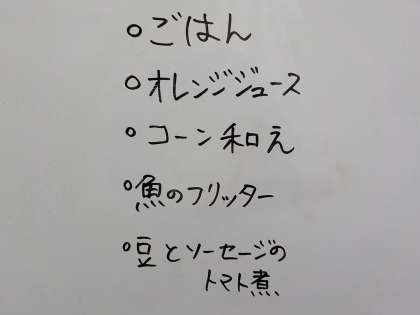 ○ごはん
○オレンジジュース
○コーン和え
○魚のフリッター
○豆とソーセージの
トマト煮